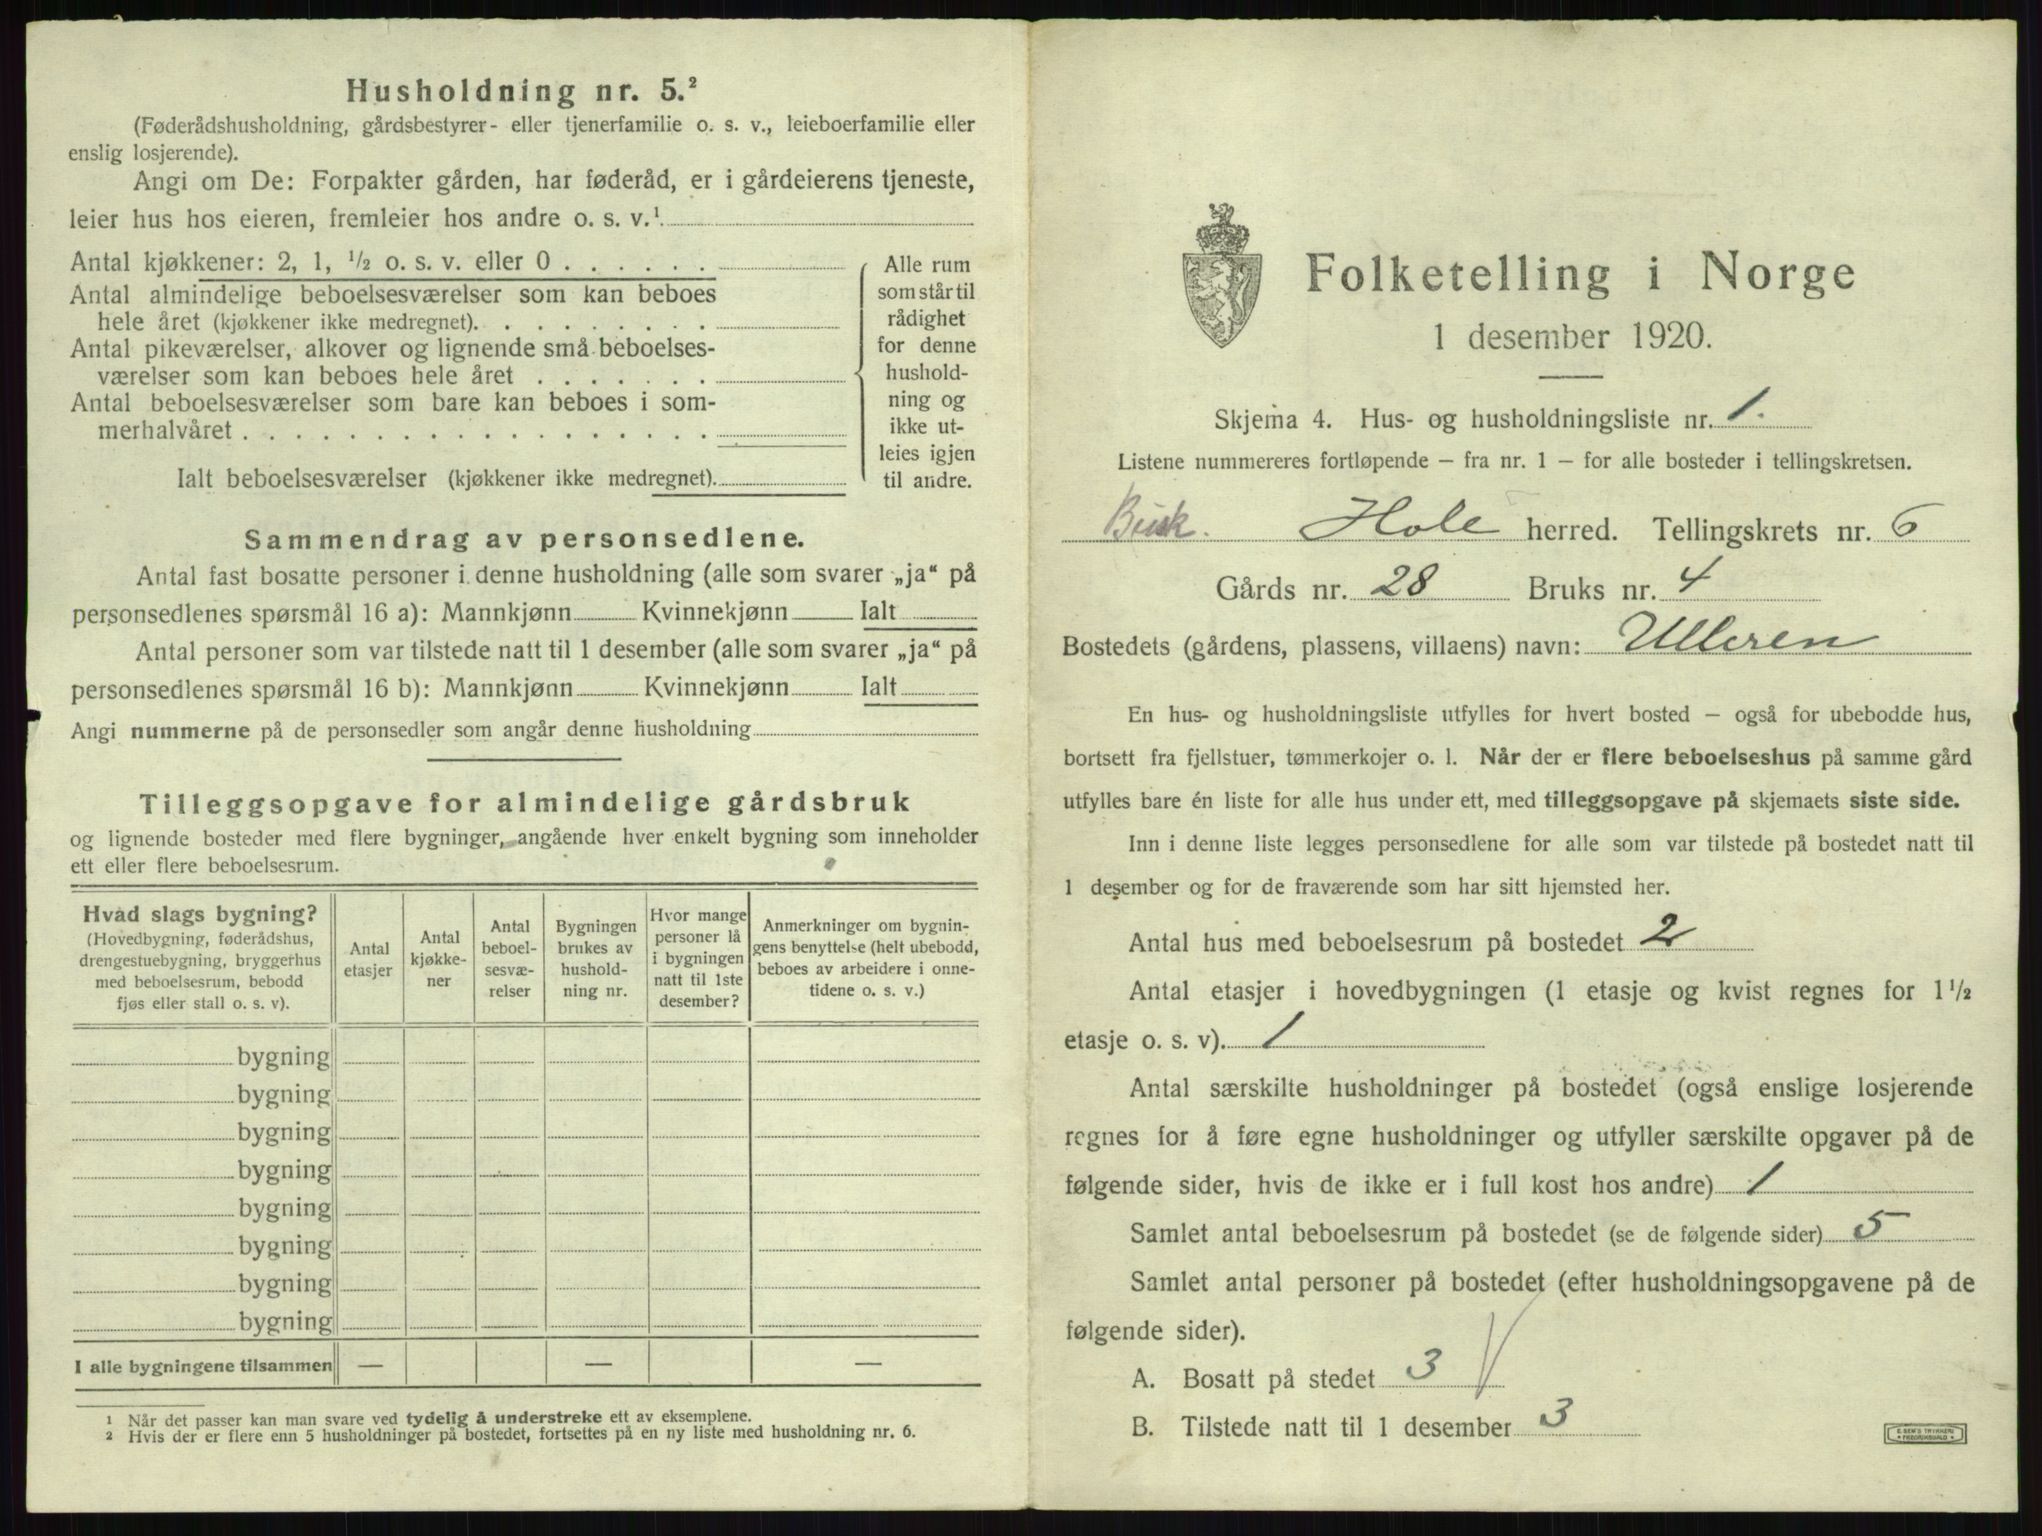 Husholdning nr. 5.²
(Føderådshusholdning, gårdsbestyrer- eller tjenerfamilie o. s. v., leieboerfamilie eller
enslig losjerende).
Angi om De: Forpakter gården, har føderåd, er i gårdeierens tjeneste,
leier hus hos eieren, fremleier hos andre o. s. v.¹
Antal kjøkkener: 2, 1, ½ o. s. v. eller 0 . . . . . .
Antal almindelige beboelsesværelser som kan beboes
hele året (kjøkkener ikke medregnet). . . . . . . . .
Antal pikeværelser, alkover og lignende små beboelses-
værelser som kan beboes hele året . . . . . . .
Antal beboelsesværelser som bare kan beboes i som-
merhalvåret . . . . . . . . . . . . . . . . . .
Ialt beboelsesværelser (kjøkkener ikke medregnet).
Alle rum
som står til
rådighet
for denne
hushold-
ning og
ikke ut-
leies igjen
til andre.
Sammendrag av personsedlene.
Antal fast bosatte personer i denne husholdning (alle som svarer „ja“ på
personsedlenes spørsmål 16 a): Mannkjønn Kvinnekjønn Ialt
Antal personer som var tilstede natt til 1 desember (alle som svarer „ja“ på
personsedlenes spørsmål 16 b): Mannkjønn Kvinnekjønn Ialt
Angi nummerne på de personsedler som angår denne husholdning
Tilleggsopgave for almindelige gårdsbruk
og lignende bosteder med flere bygninger, angående hver enkelt bygning som inneholder
ett eller flere beboelsesrum.
Hvad slags bygning?
(Hovedbygning, føderådshus,
drengestuebygning, bryggerhus
med beboelsesrum, bebodd
fjøs eller stall o. s. v).
Antal
etasjer
Antal
kjøkke-
ner
Antal
beboel-
sesvæ-
relser
Bygningen
brukes av
hushold-
ning nr.
Hvor mange
personer lå
i bygningen
natt til 1ste
desember?
Anmerkninger om bygnin-
gens benyttelse (helt ubebodd,
beboes av arbeidere i onne-
tidene o. s. v.)
bygning
bygning
bygning
bygning
bygning
bygning
bygning
bygning
I alle bygningene tilsammen — — —
1 Når det passer kan man svare ved tydelig å understreke ett av eksemplene.
2 Hvis der er flere enn 5 husholdninger på bostedet, fortsettes på en ny liste med husholdning nr. 6.
Folketelling i Norge
1 desember 1920.
Skjema 4. Hus- og husholdningsliste nr. 1.
Listene nummereres fortløpende – fra nr. 1 – for alle bosteder i tellingskretsen.
Busk. Hole herred. Tellingskrets nr. 6
Gårds nr. 28 Bruks nr. 4
Bostedets (gårdens, plassens, villaens) navn: Ulleren
En hus- og husholdningsliste utfylles for hvert bosted – også for ubebodde hus,
bortsett fra fjellstuer, tømmerkojer o. l. Når der er flere beboelseshus på samme gård
utfylles bare én liste for alle hus under ett, med tilleggsopgave på skjemaets siste side.
Inn i denne liste legges personsedlene for alle som var tilstede på bostedet natt til
1 desember og for de fraværende som har sitt hjemsted her.
Antal hus med beboelsesrum på bostedet 2
Antal etasjer i hovedbygningen (1 etasje og kvist regnes for 1½
etasje o. s. v). 1
Antal særskilte husholdninger på bostedet (også enslige losjerende
regnes for å føre egne husholdninger og utfyller særskilte opgaver på de
følgende sider, hvis de ikke er i full kost hos andre) 1
Samlet antal beboelsesrum på bostedet (se de følgende sider) 5
Samlet antal personer på bostedet (efter husholdningsopgavene på de
følgende sider).
A. Bosatt på stedet 3
B. Tilstede natt til 1 desember 3